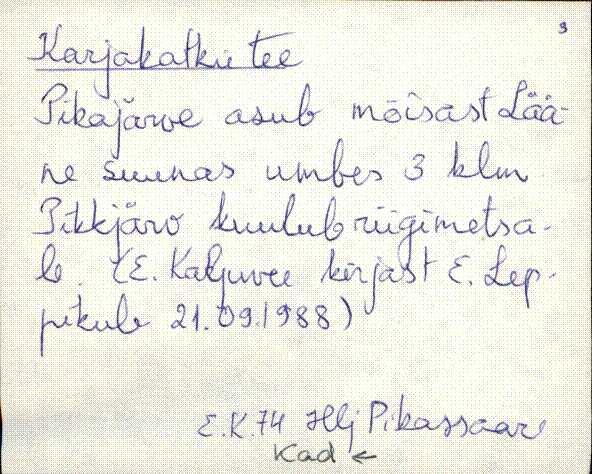 3
Karjakatku tee
Pikajärve asub mõisast Lää-
ne suunas umbes 3 klm
Pikkjärv kuulub riigimetsa-
le. (E. Kaljuvee kirjast E. Lep-
pikule 21.09.1988)
E.K. 74 Hlj Pikassaare
Kad ←